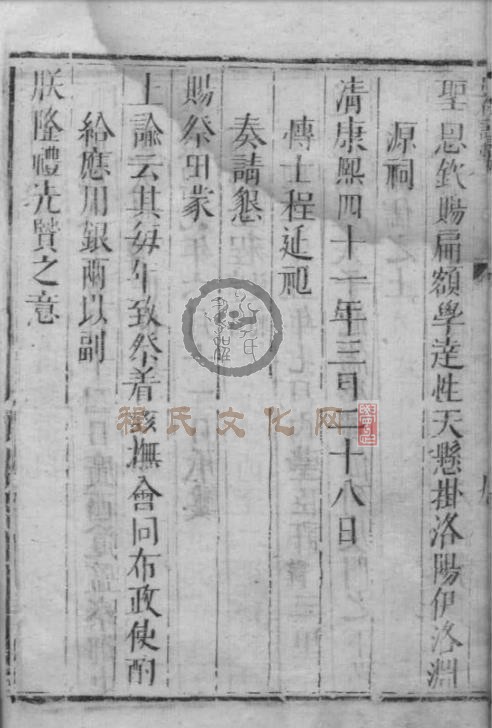 聖恩欽賜扁額學達性天懸掛洛陽伊洛淵
源祠
清康熙四十一年三月二十八日
博士程延祀
奏請懇
賜祭田蒙
上諭云其每年致祭着該撫會同布政使酌
給應用銀兩以副
朕隆禮先賢之意
程氏文化网